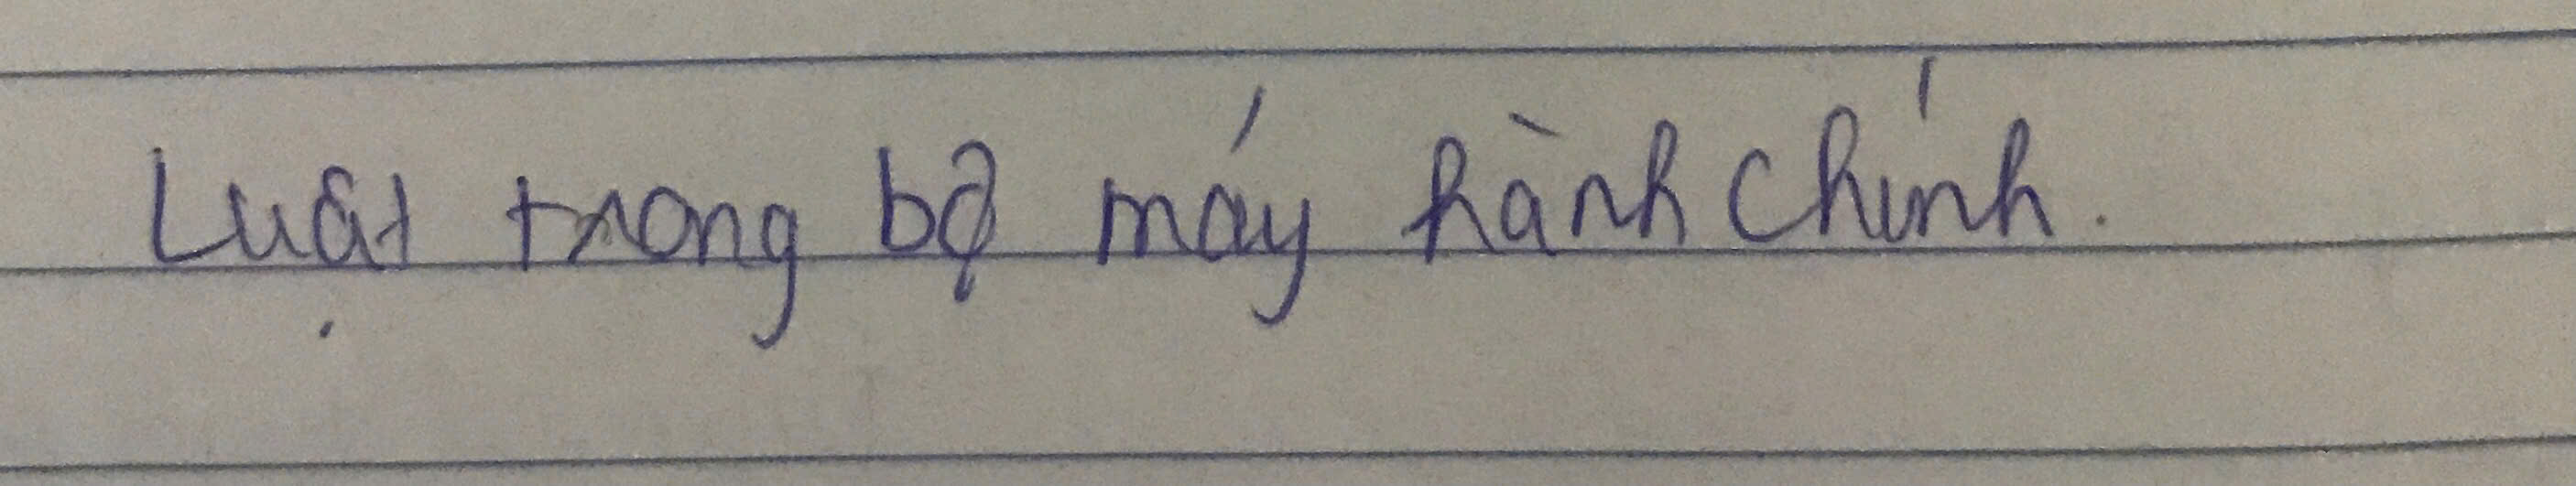 Luật trong bộ máy hành chính.